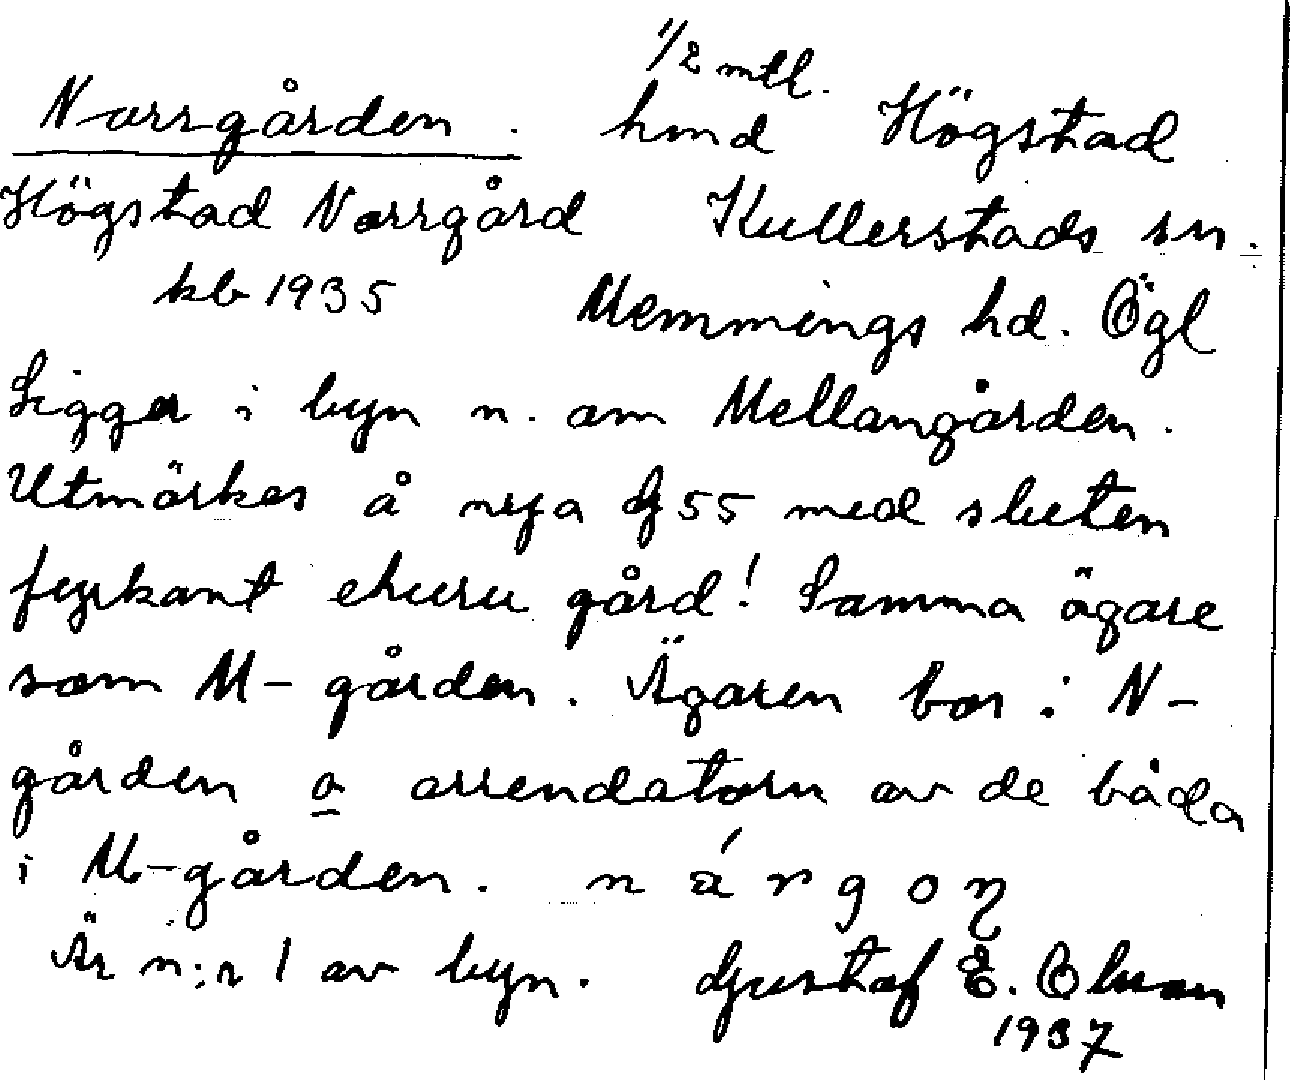 1/2 mtl.
Norrgården. hmd Högstad
Högstad Norrgård Kullerstads sn.
kb 1935 Memmings hd. Ögl
Ligger i byn n. om Mellangården.
Utmärkes å nya G 55 med sluten
fyrkant ehuru gård! Samma ägare
som M-gården. Ägaren bor i N-
gården o arrendatorn av de båda
i M-gården. n á r g o ŋ
Är n:r 1 av byn. Gustaf E. Olson
1937